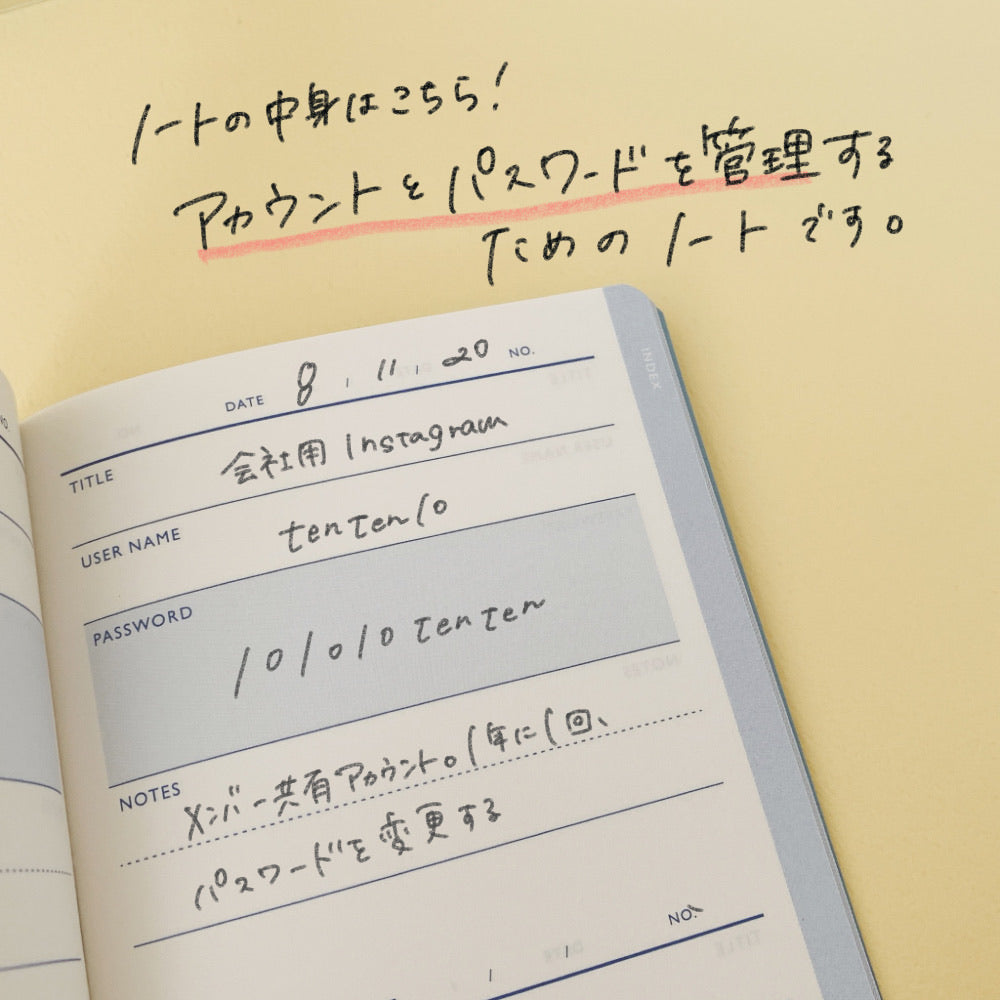 ノートの中身はこちら!
アカウントとパスワードを管理する
ためのノートです。
INDEX
DATE 8 / 11 / 20 NO.
TITLE 会社用 Instagram
USER NAME tenten10
PASSWORD 101010tenten
NOTES メンバー共有アカウント。1年に1回、
パスワードを変更する
/ / NO.